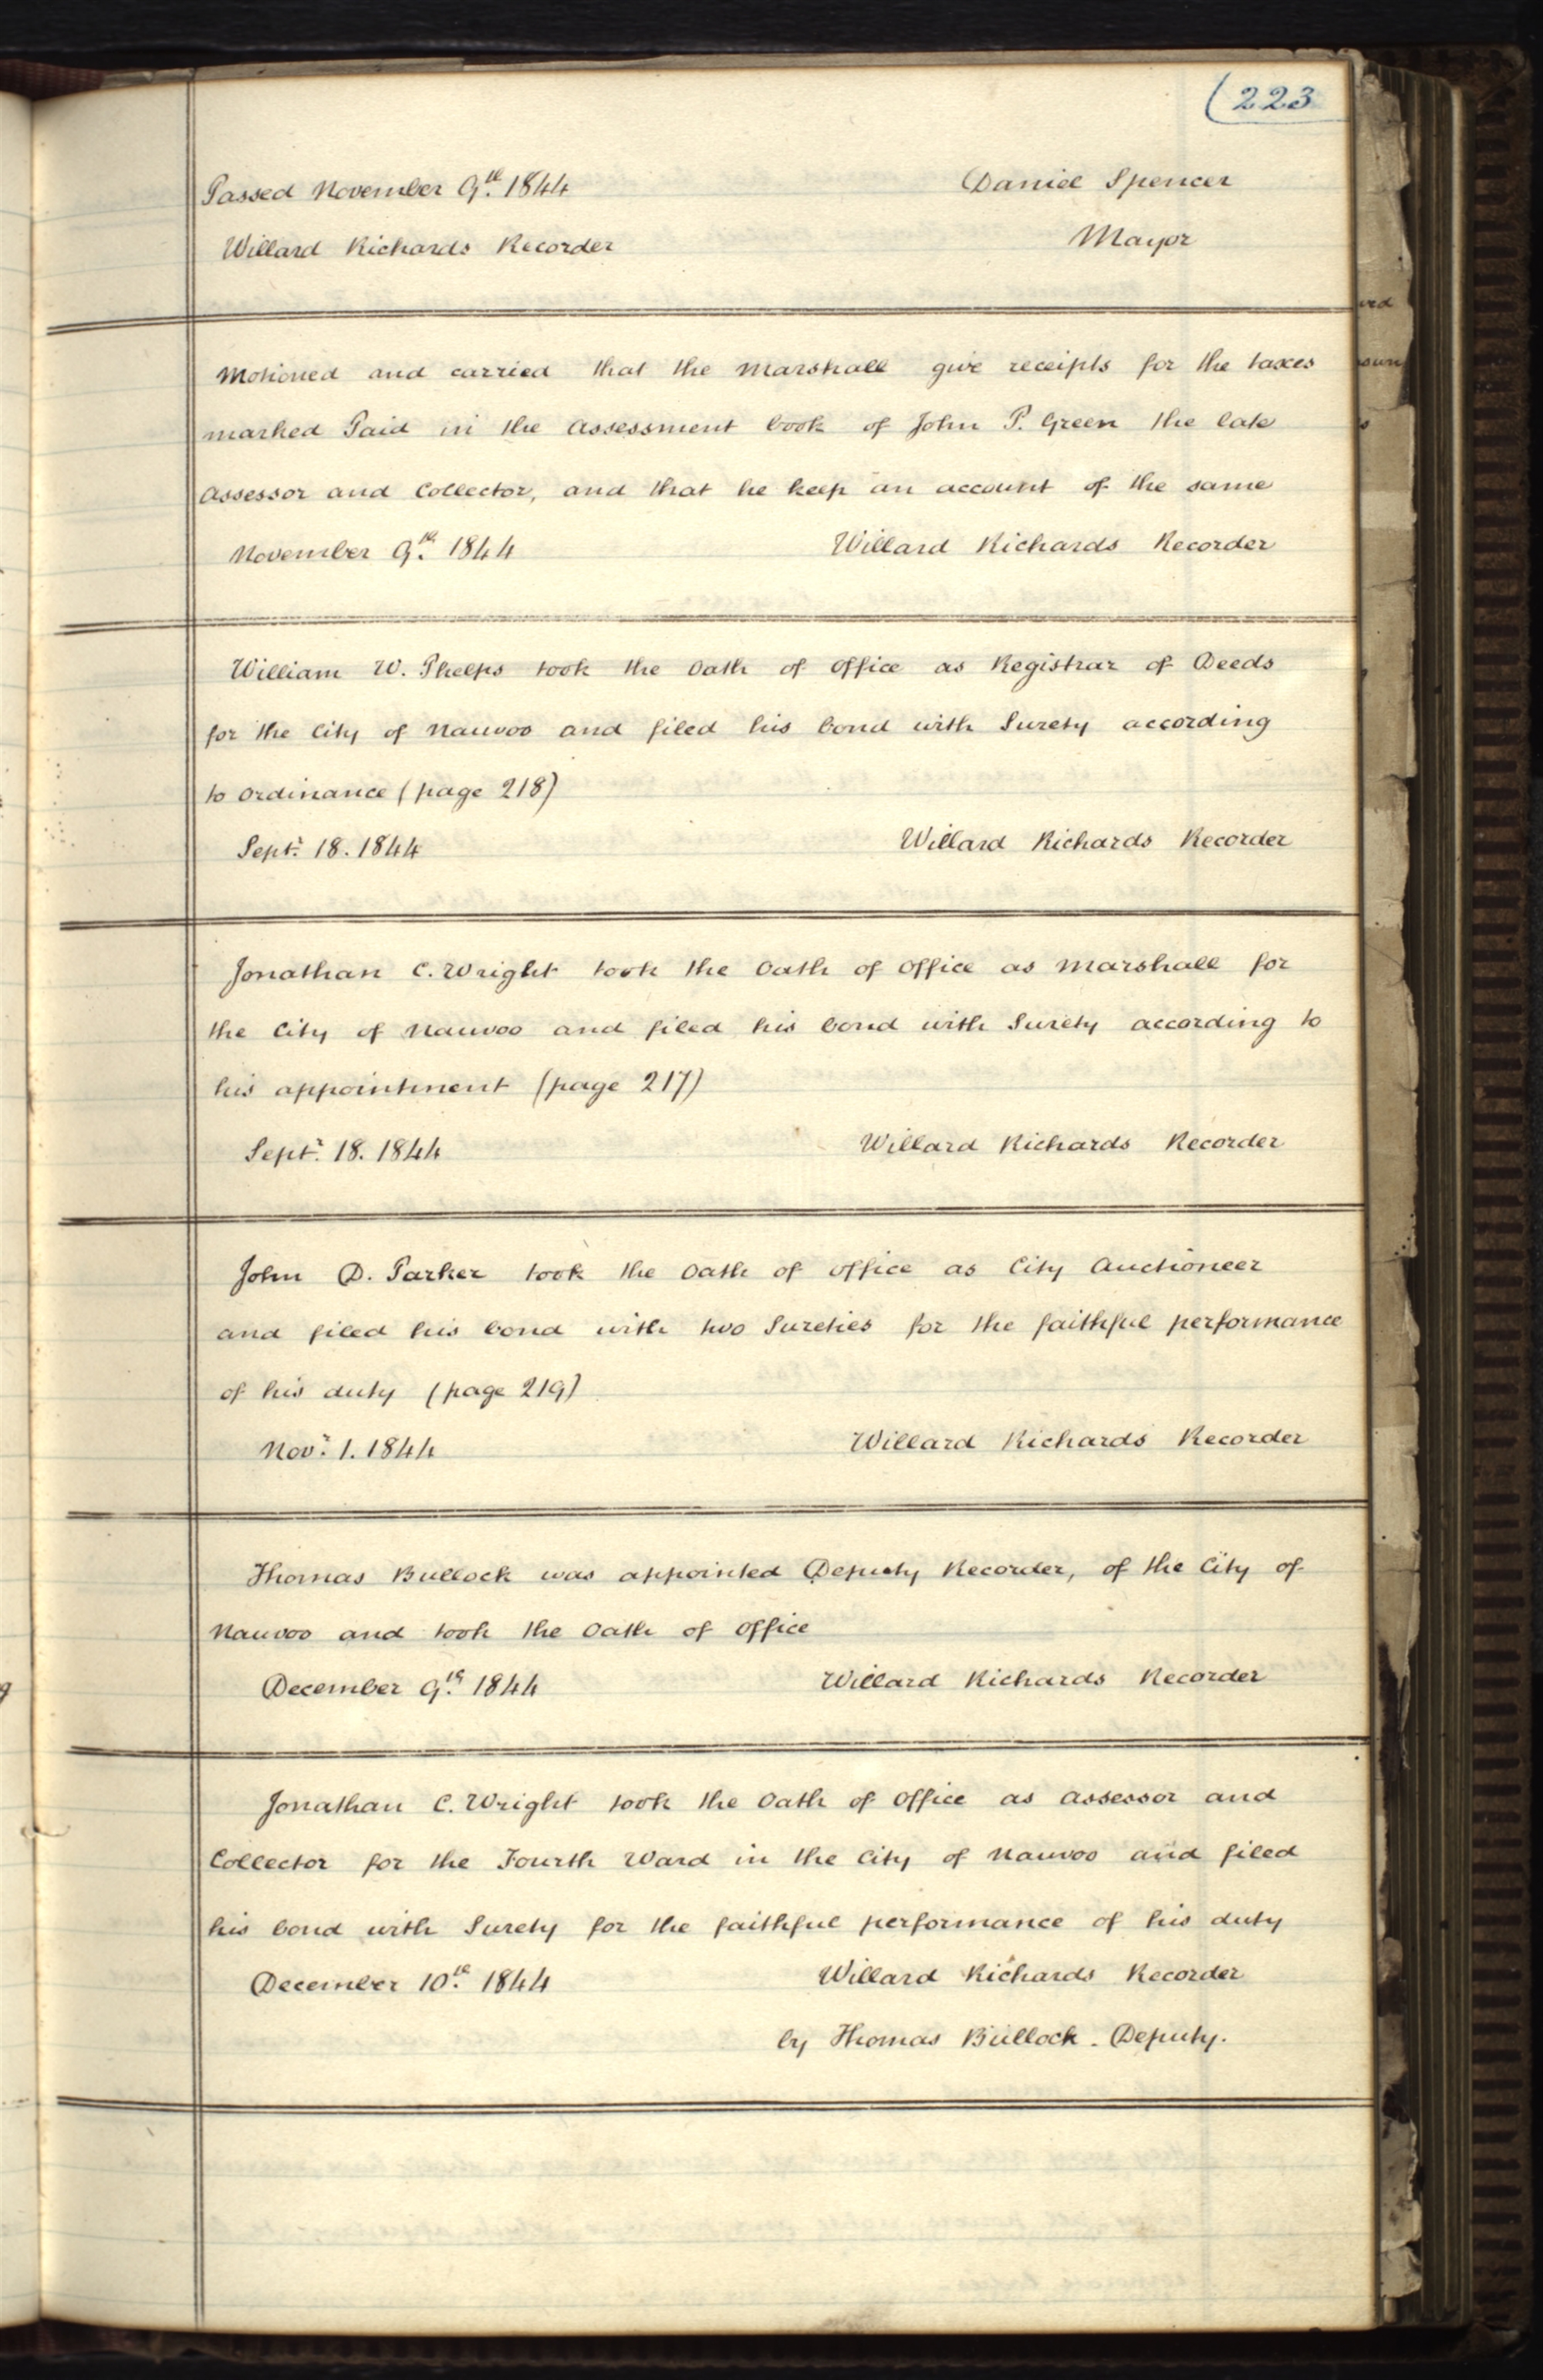 (223
Passed November 9th. 1844 Daniel Spencer
Willard Richards Recorder Mayor
Motioned and carried that the Marshall give receipts for the taxes
marked Paid in the assessment book of John P. Green the late
assessor and Collector, and that he keep an account of the same
November 9th. 1844 Willard Richards Recorder
William W. Phelps took the Oath of office as Registrar of Deeds
for the City of Nauvoo and filed his bond with Surety according
to ordinance (page 218)
Septr. 18. 1844 Willard Richards Recorder
Jonathan C. Wright took the Oath of office as Marshall for
the City of Nauvoo and filed his bond with Surety according to
his appointment (page 217)
Septr. 18. 1844 Willard Richards Recorder
John D. Parker took the Oath of office as City Auctioneer
and filed his bond with two Sureties for the faithful performance
of his duty (page 219)
Novr. 1. 1844 Willard Richards Recorder
Thomas Bullock was appointed Deputy Recorder, of the City of
Nauvoo and took the Oath of office
December 9th. 1844 Willard Richards Recorder
Jonathan C. Wright took the Oath of office as assessor and
Collector for the Fourth Ward in the City of Nauvoo and filed
his bond with Surety for the faithful performance of his duty
December 10th. 1844 Willard Richards Recorder
by Thomas Bullock. Deputy.